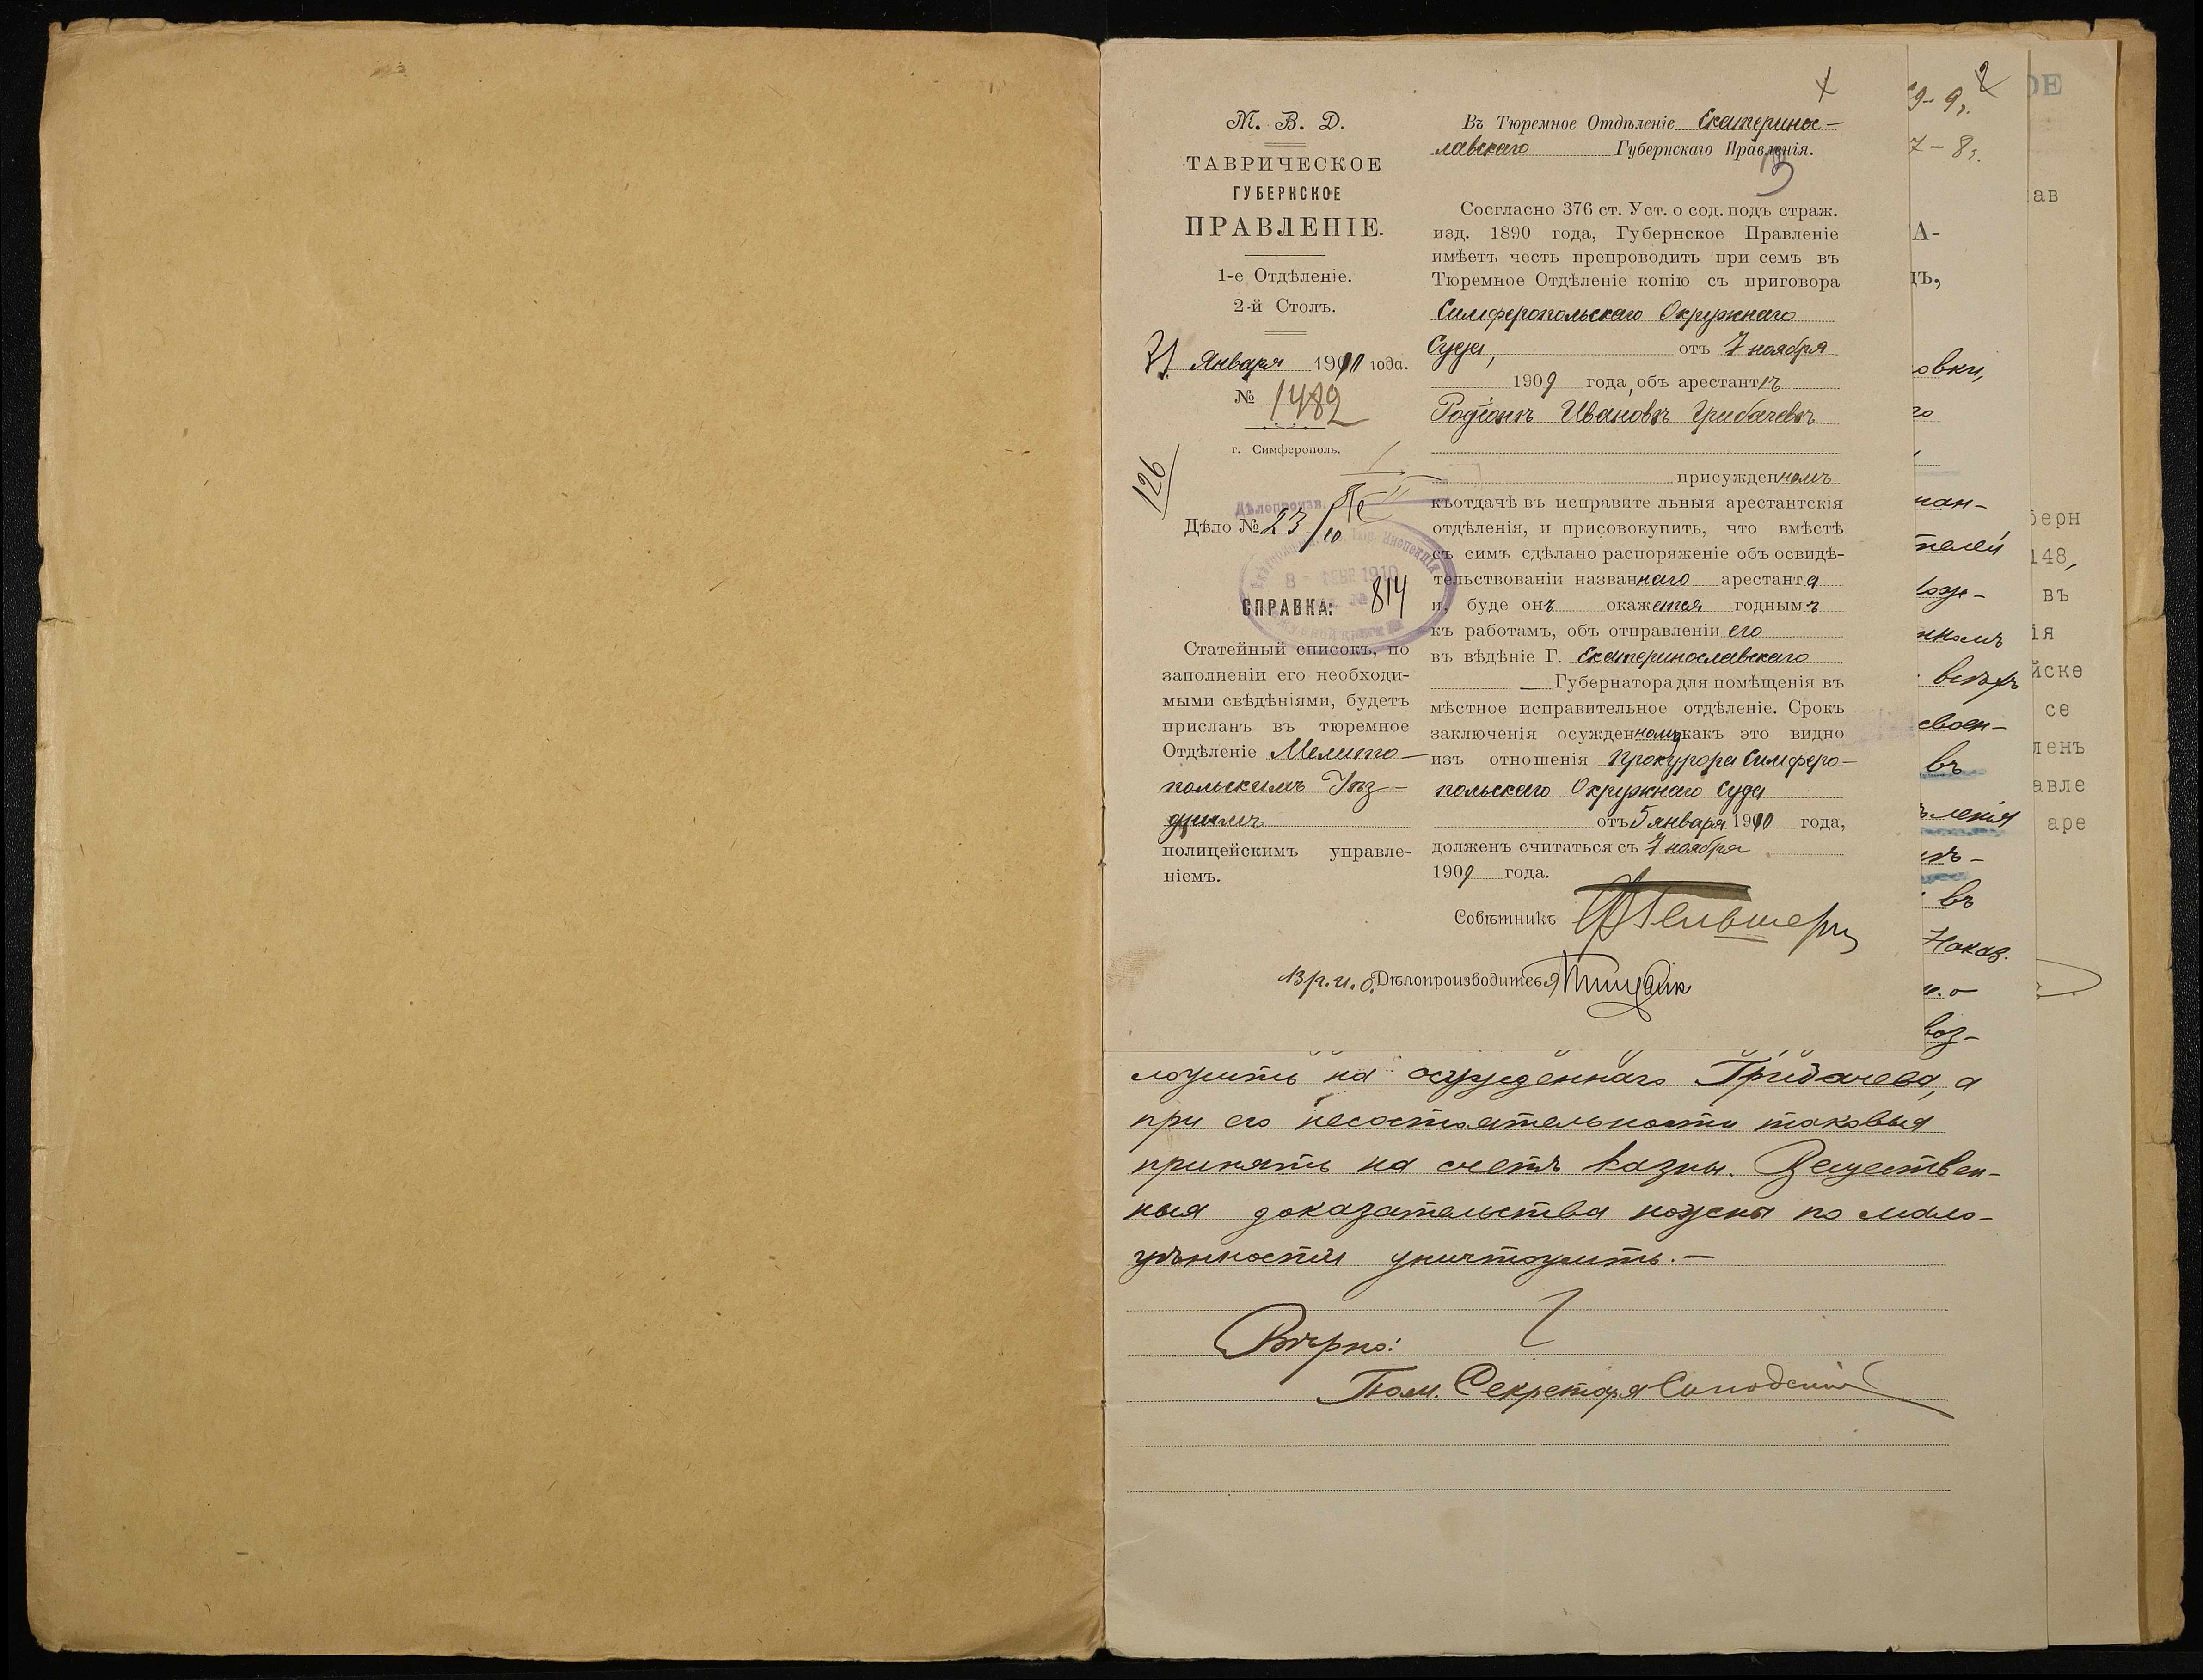 М. В. Д.
ТАВРИЧЕСКОЕ
ГУБЕРНСКОЕ
ПРАВЛЕНІЕ.
1-е Отдѣленіе.
2-й Столъ.
31 Января 1910 года.
№ 1482
г. Симферополь.
126
Дѣлопроизв.
Дѣло № 23/10
8 - ФЕВР 1910
814
СПРАВКА:
Статейный списокъ, по
заполненіи его необходи-
мыми свѣдѣніями, будетъ
присланъ въ тюремное
Отдѣленіе Мелито-
польскимъ Уѣз-
днымъ
полицейскимъ управле-
ніемъ.
Въ Тюремное Отдѣленіе Екатеринос-
лавскаго Губернскаго Правленія.
Сосгласно 376 ст. Уст. о сод. подъ страж.
изд. 1890 года, Губернское Правленіе
имѣетъ честь препроводить при семъ въ
Тюремное Отдѣленіе копію съ приговора
Симферопольскаго Окружнаго
Суда, отъ 7 ноября
1909 года, объ арестантѣ
Родіонѣ Ивановѣ Грибачевѣ
присужденномъ
къотдачѣ въ исправите льныя арестантскія
отдѣленія, и присовокупить, что вмѣстѣ
съ симъ сдѣлано распоряженіе объ освидѣ-
тельствованіи названнаго арестанта
и, буде онъ окажется годнымъ
къ работамъ, объ отправленіи его
въ вѣдѣніе Г. Екатеринославскаго
Губернатора для помѣщенія въ
мѣстное исправительное отдѣленіе. Срокъ
заключенія осужденному какъ это видно
изъ отношенія Прокурора Симферо-
польскаго Окружнаго Суда
отъ 5 января 1910 года,
долженъ считаться съ 7 ноября
1909 года.
Совѣтникъ
Вр. и. д. Дѣлопроизводителя
ложить на осужденнаго Грибачева, а
при его несостоятельности таковыя
принять на счетъ казны. Веществен-
ныя доказательства ножны по мало-
цѣнности уничтожить. —
Вѣрно:
Пом. Секретаря Синодскій
9- 9г.
7 - 8г.
2
А-
цъ,
овки,
го
ман-
телей
нномъ
всѣхъ
своен-
въ
вленія
въ
Наказ.
воз-
ОЕ
ав
берн
148,
въ
ія
йске
се
ленъ
авле
аре